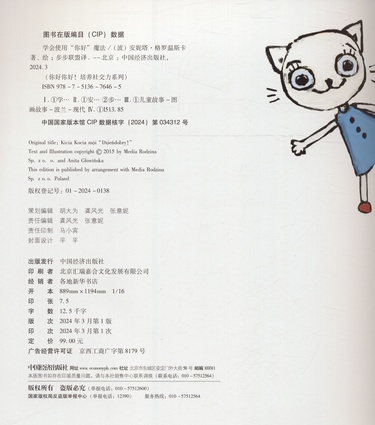 图书在版编目（CIP）数据
学会使用“你好”魔法 /（波）安妮塔·格罗温斯卡
著、绘；步步联盟译. -- 北京：中国经济出版社，
2024. 3
（你好你好！培养社交力系列）
ISBN 978-7-5136-7646-5
Ⅰ. ①学… Ⅱ. ①安… ②步… Ⅲ. ①儿童故事－图
画故事－波兰－现代 Ⅳ. ①I513.85
中国国家版本馆 CIP 数据核字（2024）第 034312 号
Original title: Kicia Kocia mówi "Dzień dobry!"
Text and Illustration copyright © 2015 by Media Rodzina
Sp. z o. o. and Anita Głowińska
This edition is published by arrangement with Media Rodzina
Sp. z o. o. Poland
版权登记号：01-2024-0138
策划编辑 胡大为 龚风光 张意妮
责任编辑 龚风光 张意妮
责任印制 马小宾
封面设计 平 平
出版发行 中国经济出版社
印 刷 者 北京汇瑞嘉合文化发展有限公司
经 销 者 各地新华书店
开 本 889mm×1194mm 1/16
印 张 7.5
字 数 12.5 千字
版 次 2024 年 3 月第 1 版
印 次 2024 年 3 月第 1 次
定 价 99.00 元
广告经营许可证 京西工商广字第 8179 号
中国经济出版社 网址 www.economyph.com 社址 北京市东城区安定门外大街 58 号 邮编 100011
本版图书如存在印装质量问题，请与本社销售中心联系调换（联系电话：010-57512564）
版权所有 盗版必究（举报电话：010-57512600）
国家版权局反盗版举报中心（举报电话：12390） 服务热线：010-57512564